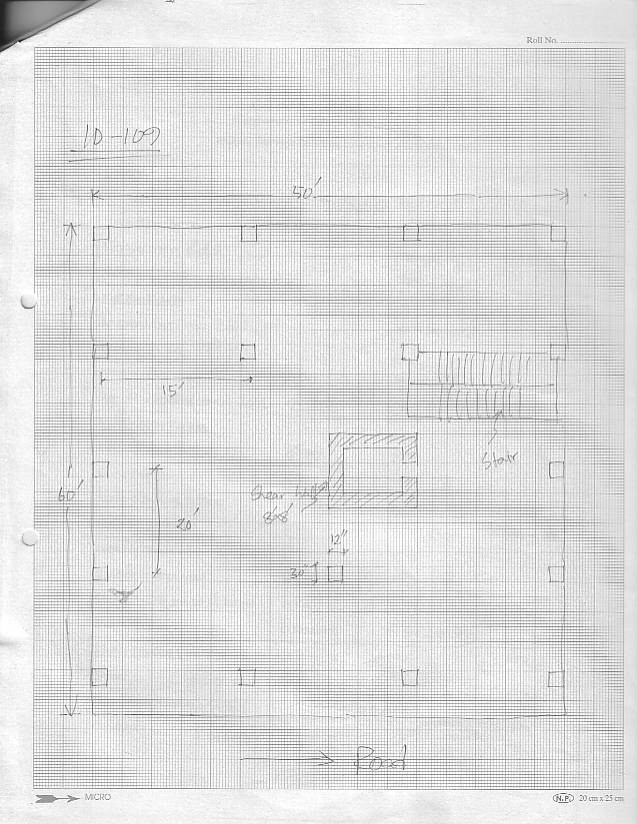 Roll No. ...................
ID-109
50'
15'
Stair
60'
Shear wall
8'x8'
20'
12"
30"
Road
MICRO
N.P. 20 cm x 25 cm